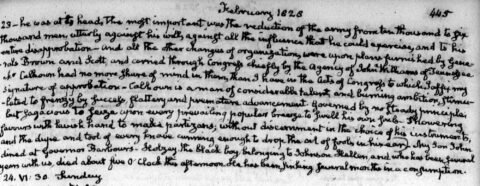 February 1828
445
23 - he was at its head. The most important was the reduction of the army from ten thousand to six
thousand men, utterly against his will, against all the influence that he could exercise, and to his
entire disapprobation - And all the other changes of organization, were upon plans furnished by Gene-
rals Brown and Scott, and carried through Congress chiefly by the agency of John Williams of Tennessee
Mr Calhoun had no more share of mind in them, than I have in the acts of Congress to which I affix my
signature of approbation - Calhoun is a man of considerable talent, and burning ambition, Stimu-
lated to frenzy by success, flattery and premature advancement. Governed by no steady principle,
but sagacious to seize upon every prevailing popular breeze to swell his own sails. Showering
favours with lavish hand to make partizans, without discernment in the choice of his instruments,
and the dupe and tool of every knave cunning enough to drop the oil of fools in his ear. My Son John
dined at Governor Barbour's. Holzey, the black boy belonging to Johnson Hellen, and who has been several
years with us, died about five O'Clock this afternoon. He has been sinking several months in a consumption.
24. VI: 30. Sunday